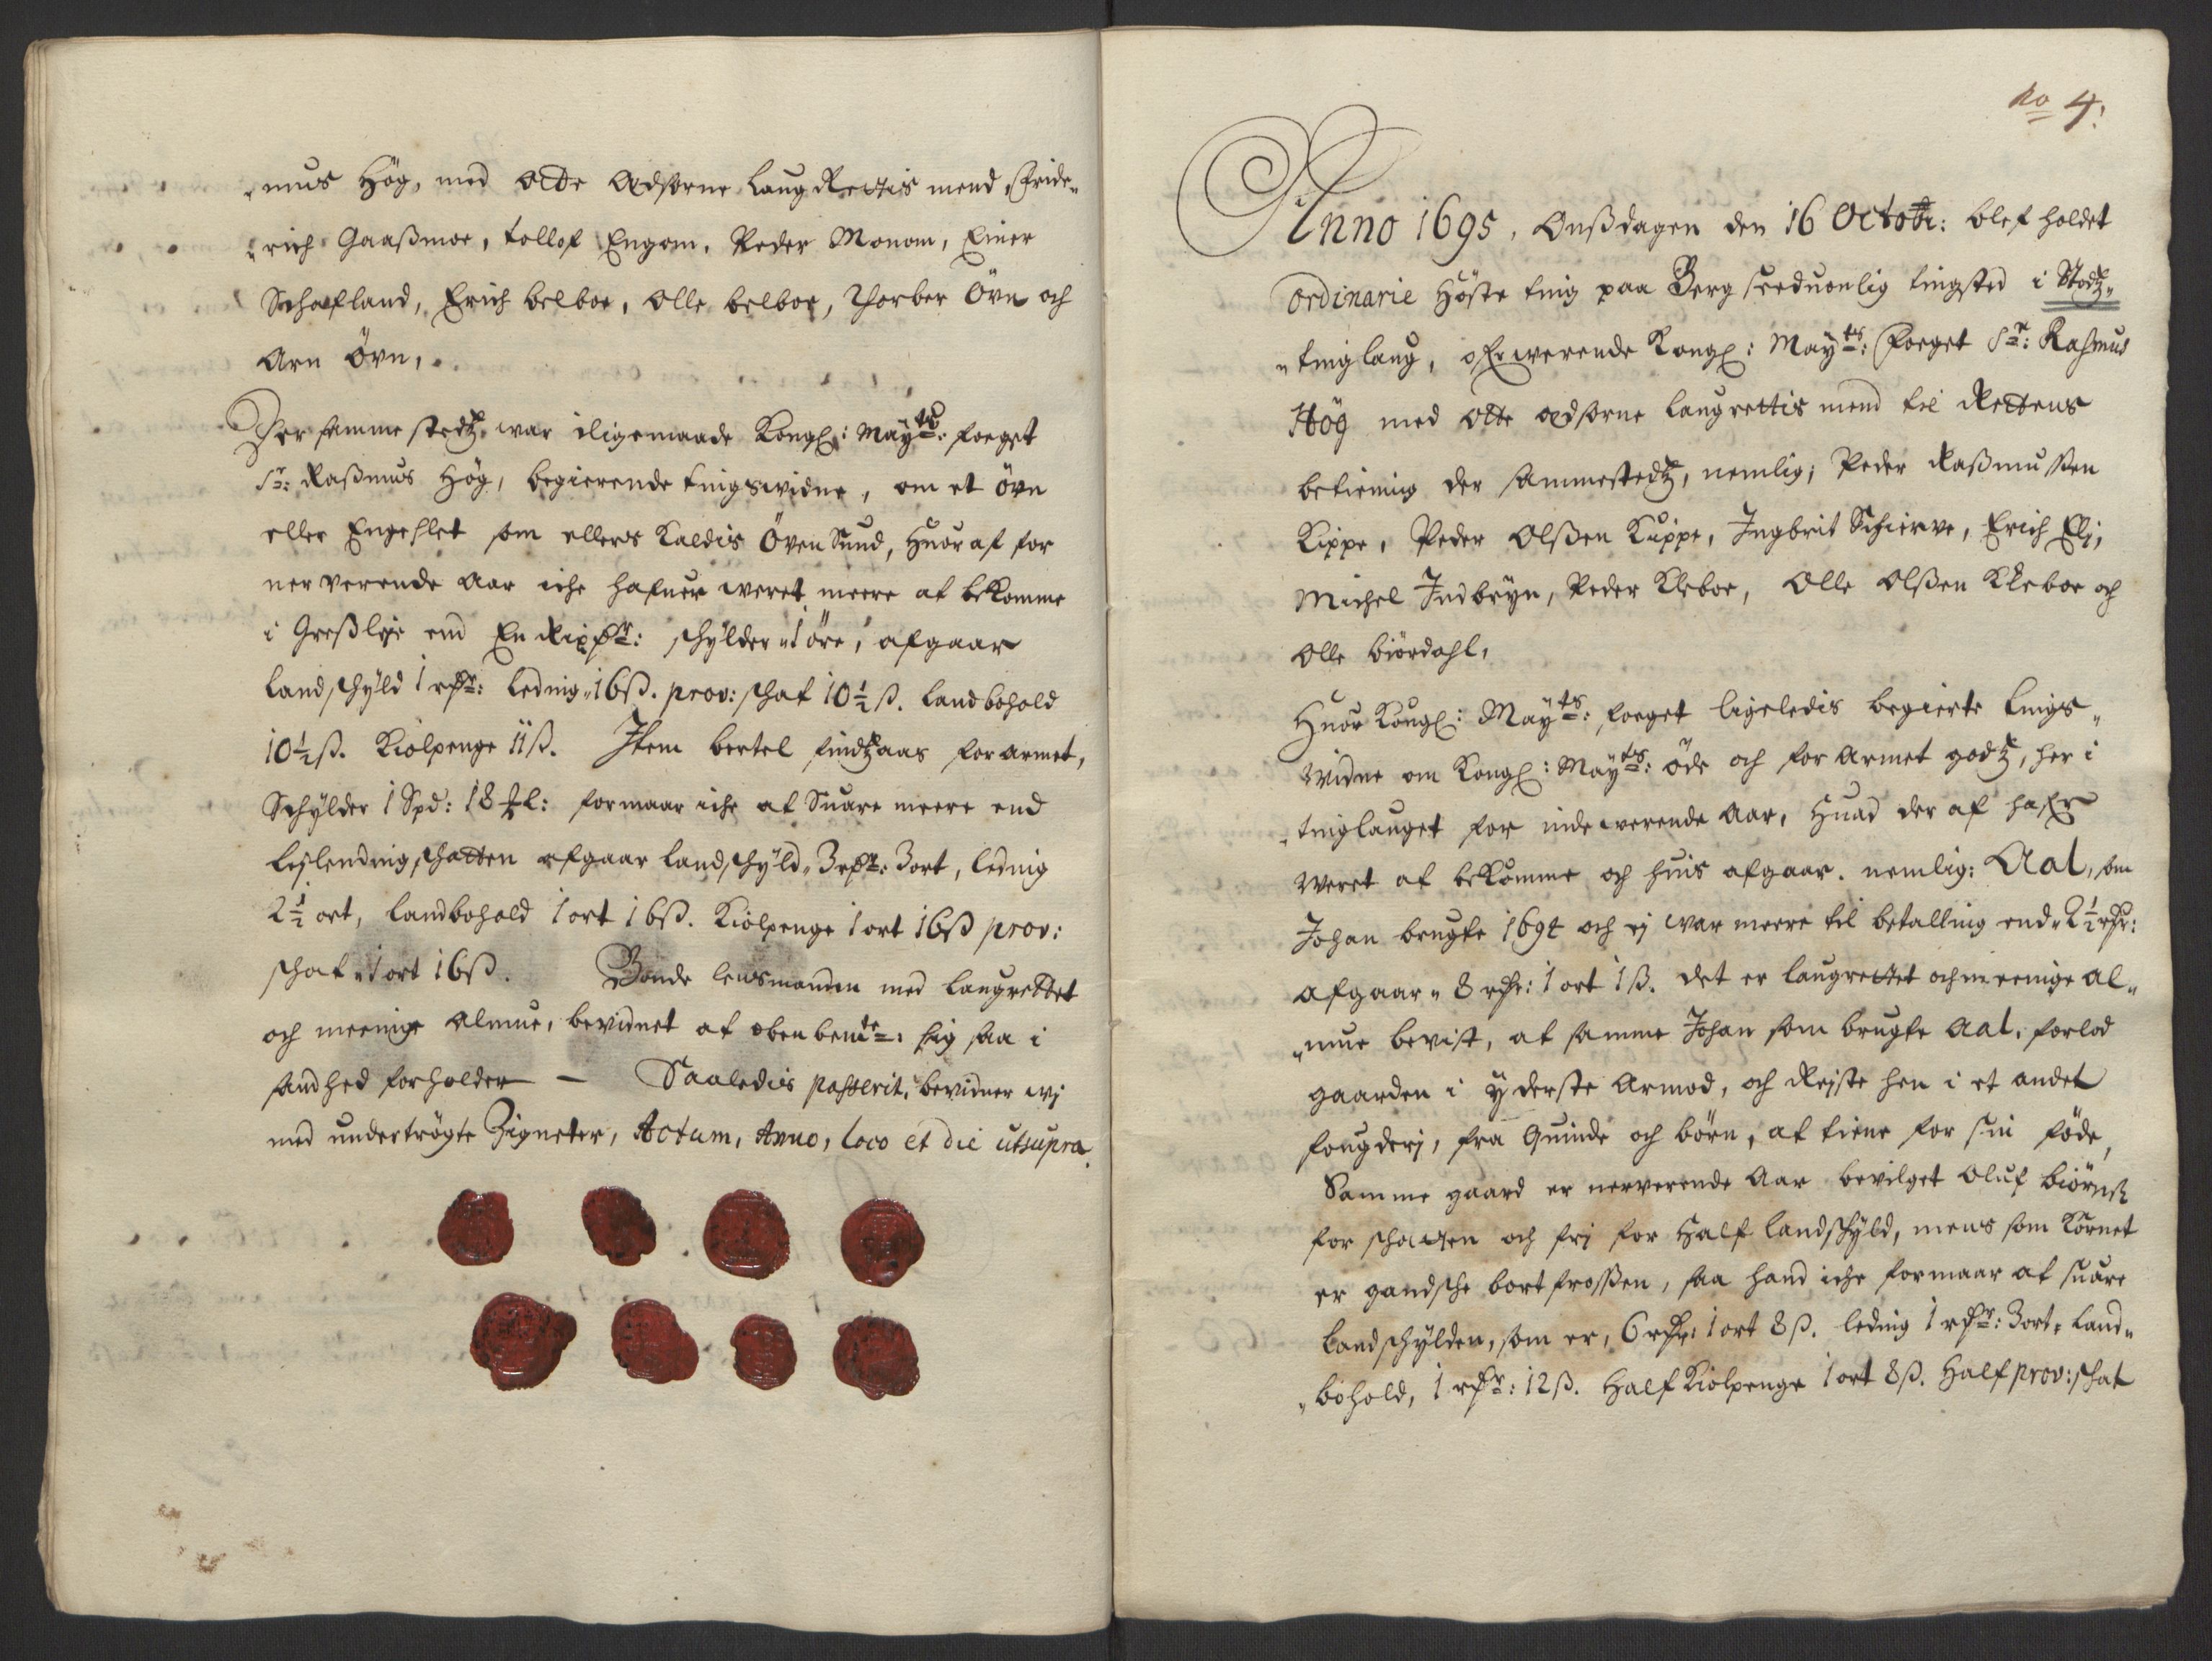 "mus Hög, med Otte Edsorne Laug Rettis mend, Fride"
"rich Gaaßmoe, Tollof Engom, Peder Monom, Einer
Schafland, Erich belboe, Olle belboe, Thorber Övn och
Arn Övn,
Der samme stedtz war iligemaade Kongl: Maÿts: foeget
Sr: Raßmus Hög, begierende tingswidne, om et Övn
eller Engeslet som ellers kaldis Öven Sund, Huor af for
nerverende Aar iche hafuer weret meere at bekomme
i Græßleje end En Rixdr: schÿlder 1 öre, afgaar
landschÿld 1 rdr: leding 16ß. prov: schat 10½ ß. landbohold
10½ ß. Kiölpenge 11ß. Item bertel findtzaas forarmet,
Schÿlder 1 Spd: 18 : formaar iche at Suare meere end
leylending schatten afgaar landschÿld 3 rdr: 3 ort, leding
2½ ort, landbohold 1 ort 16ß. Kiölpenge 1 ort 16ß prov:
schat 1 ort 16ß. Bonde lensmanden med laugrettet
och meenige almue, bevidnet at oben bemte: sig saa i
sandhed forholder — Saaledis passerit, bevidner wj
med undertrögte Zigneter, Actum, Anno, loco et die utsupra.
No 4.
Anno 1695, Onßdagen den 16 Octobr: blef holdet
ordinarie Höste ting paa Berg seeduonlig tingsted i Stodtz"
"tinglaug, oferwerende Kongl: Maÿts: Foeget Sr: Rasmus
Hög med Otte edsorne laugrettis mend til Rettens
betiening der sammestedtz, nemlig; Peder Raßmussen
Kippe, Peder Olßen Kuippe, Ingbrit Schierve, Erich Elj,
Michel Indbrÿn, Peder Kleboe, Olle Olßen Kleboe och
Olle biördahl,
Huor Kongl: Maÿts: foeget ligeledis begierte tings"
widne om Kongl: Maÿts: öde och forarmet godtz, her i
"tinglauget for indewerende Aar, Huad der af hafer
weret at bekomme och huis afgaar. nemlig: Aal, som
Johan brugte 1694 och ej war meere til betalling end 2½ rdr:
afgaar 8 rdr: 1 ort 1ß. det er laugrettet och meenige al"
"mue bevist, at samme Johan som brugte Aal, forlod
gaarden i ÿderste Armod, och Rejste hen i et andet
fougderj, fra Quinde och börn, at tiene for sin föde,
Samme gaard er nerverende Aar bevilget Oluf biörnß
for schatten och frj for Half landschÿld, mens som Kornet
er gandsche bortfrossen, saa hand iche formaar at suare
landschÿlden, som er, 6 rdr: 1 ort 8ß. leding 1 rdr: 3 ort, land"
"bohold, 1 rdr: 12ß. Half Kiölpenge 1 ort 8ß. Half prov: schat